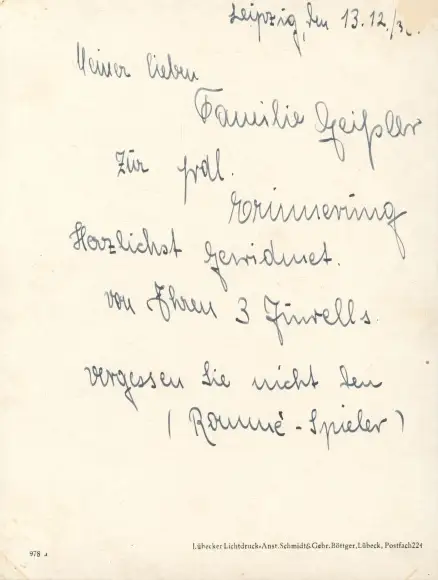 Leipzig, den 13.12./36.
Meiner lieben
Familie Geißler
Zur frdl.
Erinnerung
Herzlichst gewidmet.
von Ihren 3 Juwells
vergessen Sie nicht den
(Rommé-Spieler)
978
Lübecker Lichtdruck-Anst. Schmidt & Gebr. Böttger, Lübeck, Postfach 224